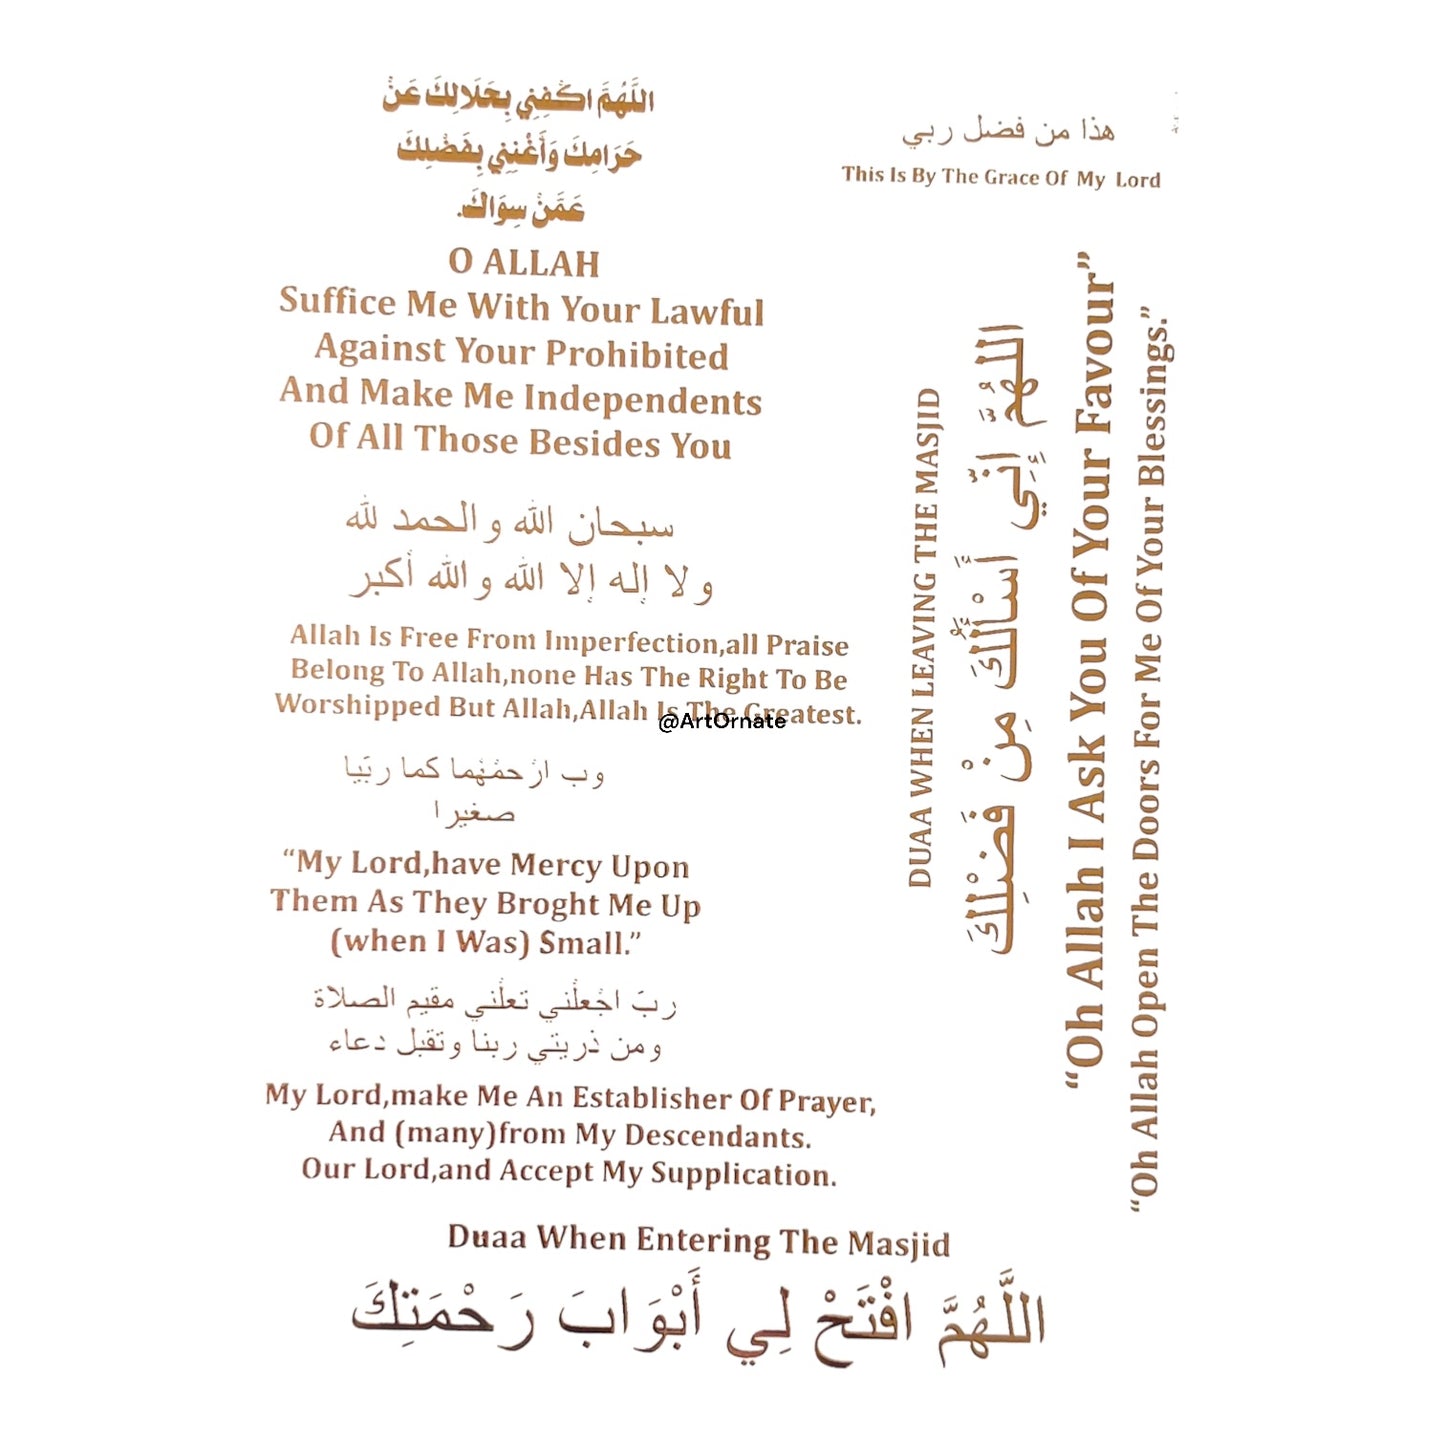 اللَّهُمَّ اكْفِنِي بِحَلَالِكَ عَنْ
حَرَامِكَ وَأَغْنِنِي بِفَضْلِكَ
عَمَّنْ سِوَاكَ.
O ALLAH
Suffice Me With Your Lawful
Against Your Prohibited
And Make Me Independents
Of All Those Besides You
سبحان الله و الحمد لله
و لا إله إلا الله و الله أكبر
Allah Is Free From Imperfection,all Praise
Belong To Allah,none Has The Right To Be
Worshipped But Allah,Allah Is The Greatest.
@ArtOrnate
وب ارْحمْهُما كما ربّيا
صغيرا
“My Lord,have Mercy Upon
Them As They Broght Me Up
(when I Was) Small.”
ربَ اجْعلْني تعلْني مقيم الصلاة
ومن ذريتي ربنا وتقبل دعاء
My Lord,make Me An Establisher Of Prayer,
And (many)from My Descendants.
Our Lord,and Accept My Supplication.
Duaa When Entering The Masjid
اللَّهُمَّ افْتَحْ لِي أَبْوَابَ رَحْمَتِكَ
هذا من فضل ربي
This Is By The Grace Of My Lord
DUAA WHEN LEAVING THE MASJID
اللهُمّ إِنِّي أَسْأَلُكَ مِنْ فَضْلِكَ
“Oh Allah I Ask You Of Your Favour”
“Oh Allah Open The Doors For Me Of Your Blessings.”